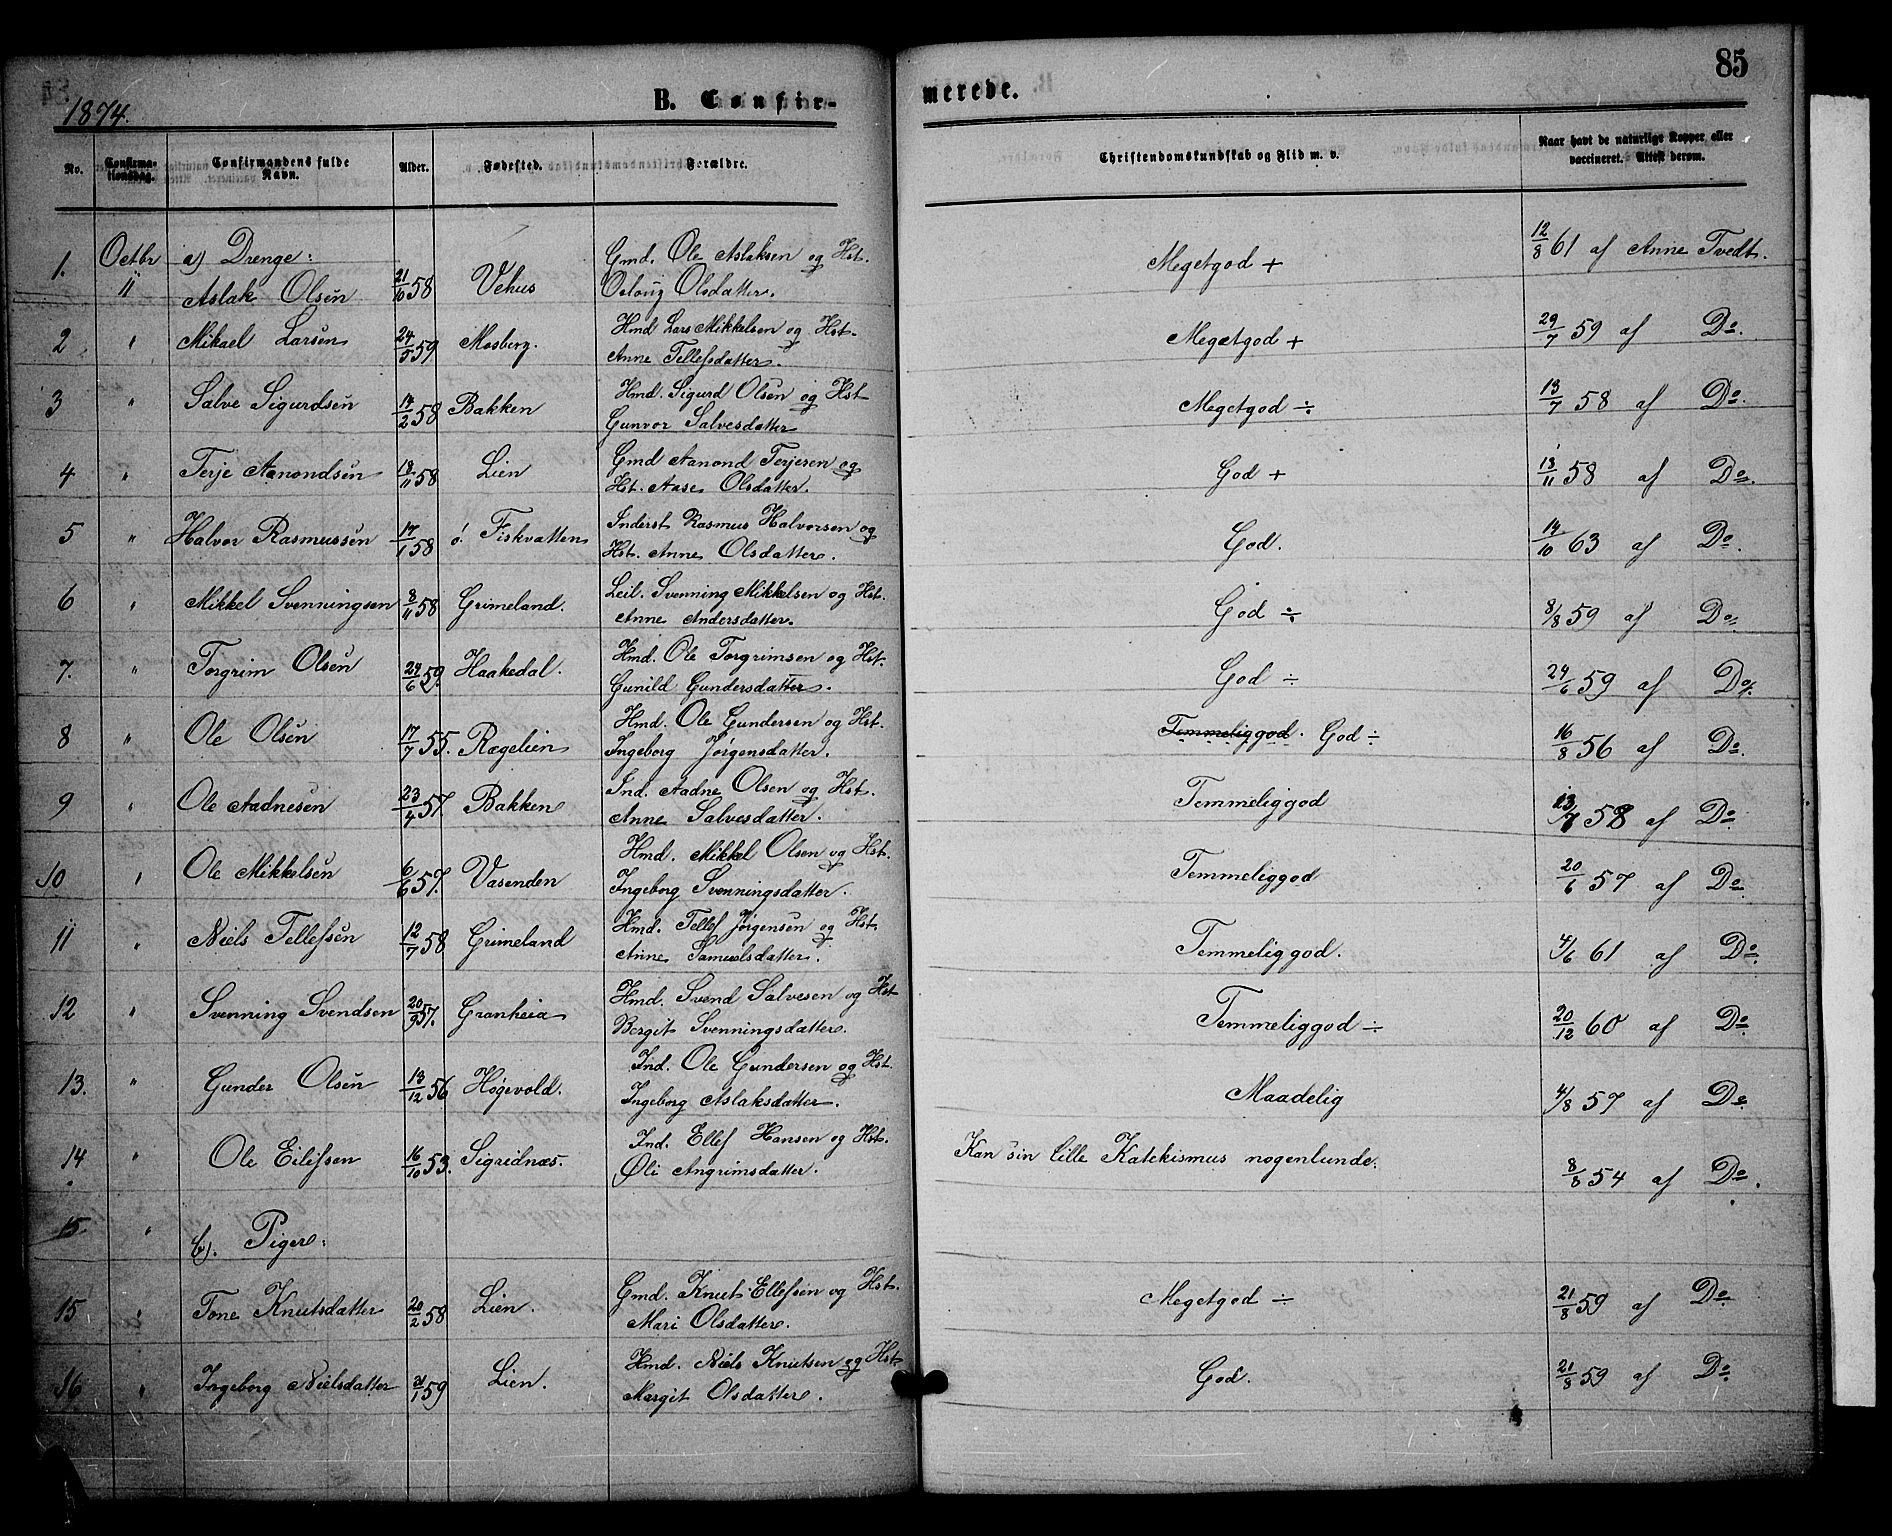 85
1874.
B. Confir-
merede.
No.
Confirma-
tionsdag.
Confirmandens fulde
Navn.
Alder.
Fødested.
Forældre.
Christendomskundskab og Flid m. v.
Naar havt de naturlige Kopper eller
vaccineret. Attest derom.
a) Drenge:
1. Octbr 11 Aslak Olsen 21/10 58 Vehus Gmd. Ole Aslaksen og Hst.
Oslaug Olsdatter. Megetgod + 12/8 61 af Anne Tvedt.
2 " Mikael Larsen 24/5 59 Mosberg. Hmd Lars Mikkelsen og Hst.
Anne Tellefsdatter. Megetgod + 29/7 59 af Do.
3 " Salve Sigurdsen 14/2 58 Bakken Hmd. Sigurd Olsen og Hst
Gunvor Salvesdatter Megetgod ÷ 13/7 58 af Do.
4 " Terje Aanondsen 18/11 58 Lien Gmd Aanond Terjesen og
Hst. Aase Olsdatter. God + 13/11 58 af Do.
5 " Halvor Rasmussen 17/1 58 ø. Fiskvatten Inderst Rasmus Halvorsen og
Hst. Anne Olsdatter. God. 14/10 63 af Do.
6 " Mikkel Svenningsen 8/11 58 Grimeland. Leil. Svenning Mikkelsen og Hst.
Anne Andersdatter. God ÷ 8/8 59 af Do.
7. " Torgrim Olsen 24/6 59. Haakedal. Hmd. Ole Torgrimsen og Hst.
Gunild Gundersdatter. God ÷ 24/6 59 af Do.
8 " Ole Olsen 17/7 55. Rægelien Hmd. Ole Gundersen og Hst.
Ingeborg Jørgensdatter. Temmeliggod. God ÷ 16/8 56 af Do.
9 " Ole Aadnesen 23/4 57. Bakken Ind. Aadne Olsen og Hst.
Anne Salvesdatter. Temmeliggod 13/7 58 af Do.
10 " Ole Mikkelsen 6/6 57. Vasenden Hmd. Mikkel Olsen og Hst.
Ingeborg Svenningsdatter. Temmeliggod 20/6 57 af Do.
11 " Niels Tellefsen 12/7 58 Grimeland Hmd. Tellef Jørgensen og Hst.
Anne Samuelsdatter. Temmeliggod. 4/6 61 af Do.
12 " Svenning Svendsen 20/9 57. Granheia Hmd. Svend Salvesen og Hst
Bergit Svenningsdatter. Temmeliggod ÷ 20/12 60 af Do.
13. " Gunder Olsen 13/12 56 Høgevold. Ind. Ole Gundersen og Hst.
Ingeborg Aslaksdatter. Maadelig 4/8 57 af Do.
14 " Ole Eilefsen 16/10 53. Sigridnæs. Ind. Ellef Hansen og Hst.
Øli Angrimsdatter. Kan sin lille Katekismus nogenlunde. 8/8 54 af Do.
15 " b). Piger:
15 " Tone Knutsdatter 20/2 58 Lien. Gmd. Knut Ellefsen og Hst.
Mari Olsdatter. Megetgod ÷ 21/8 59 af Do
16 " Ingeborg Nielsdatter 21/1 59 Lien. Hmd. Niels Knutsen og Hst
Margit Olsdatter. God. 21/8 59 af Do.